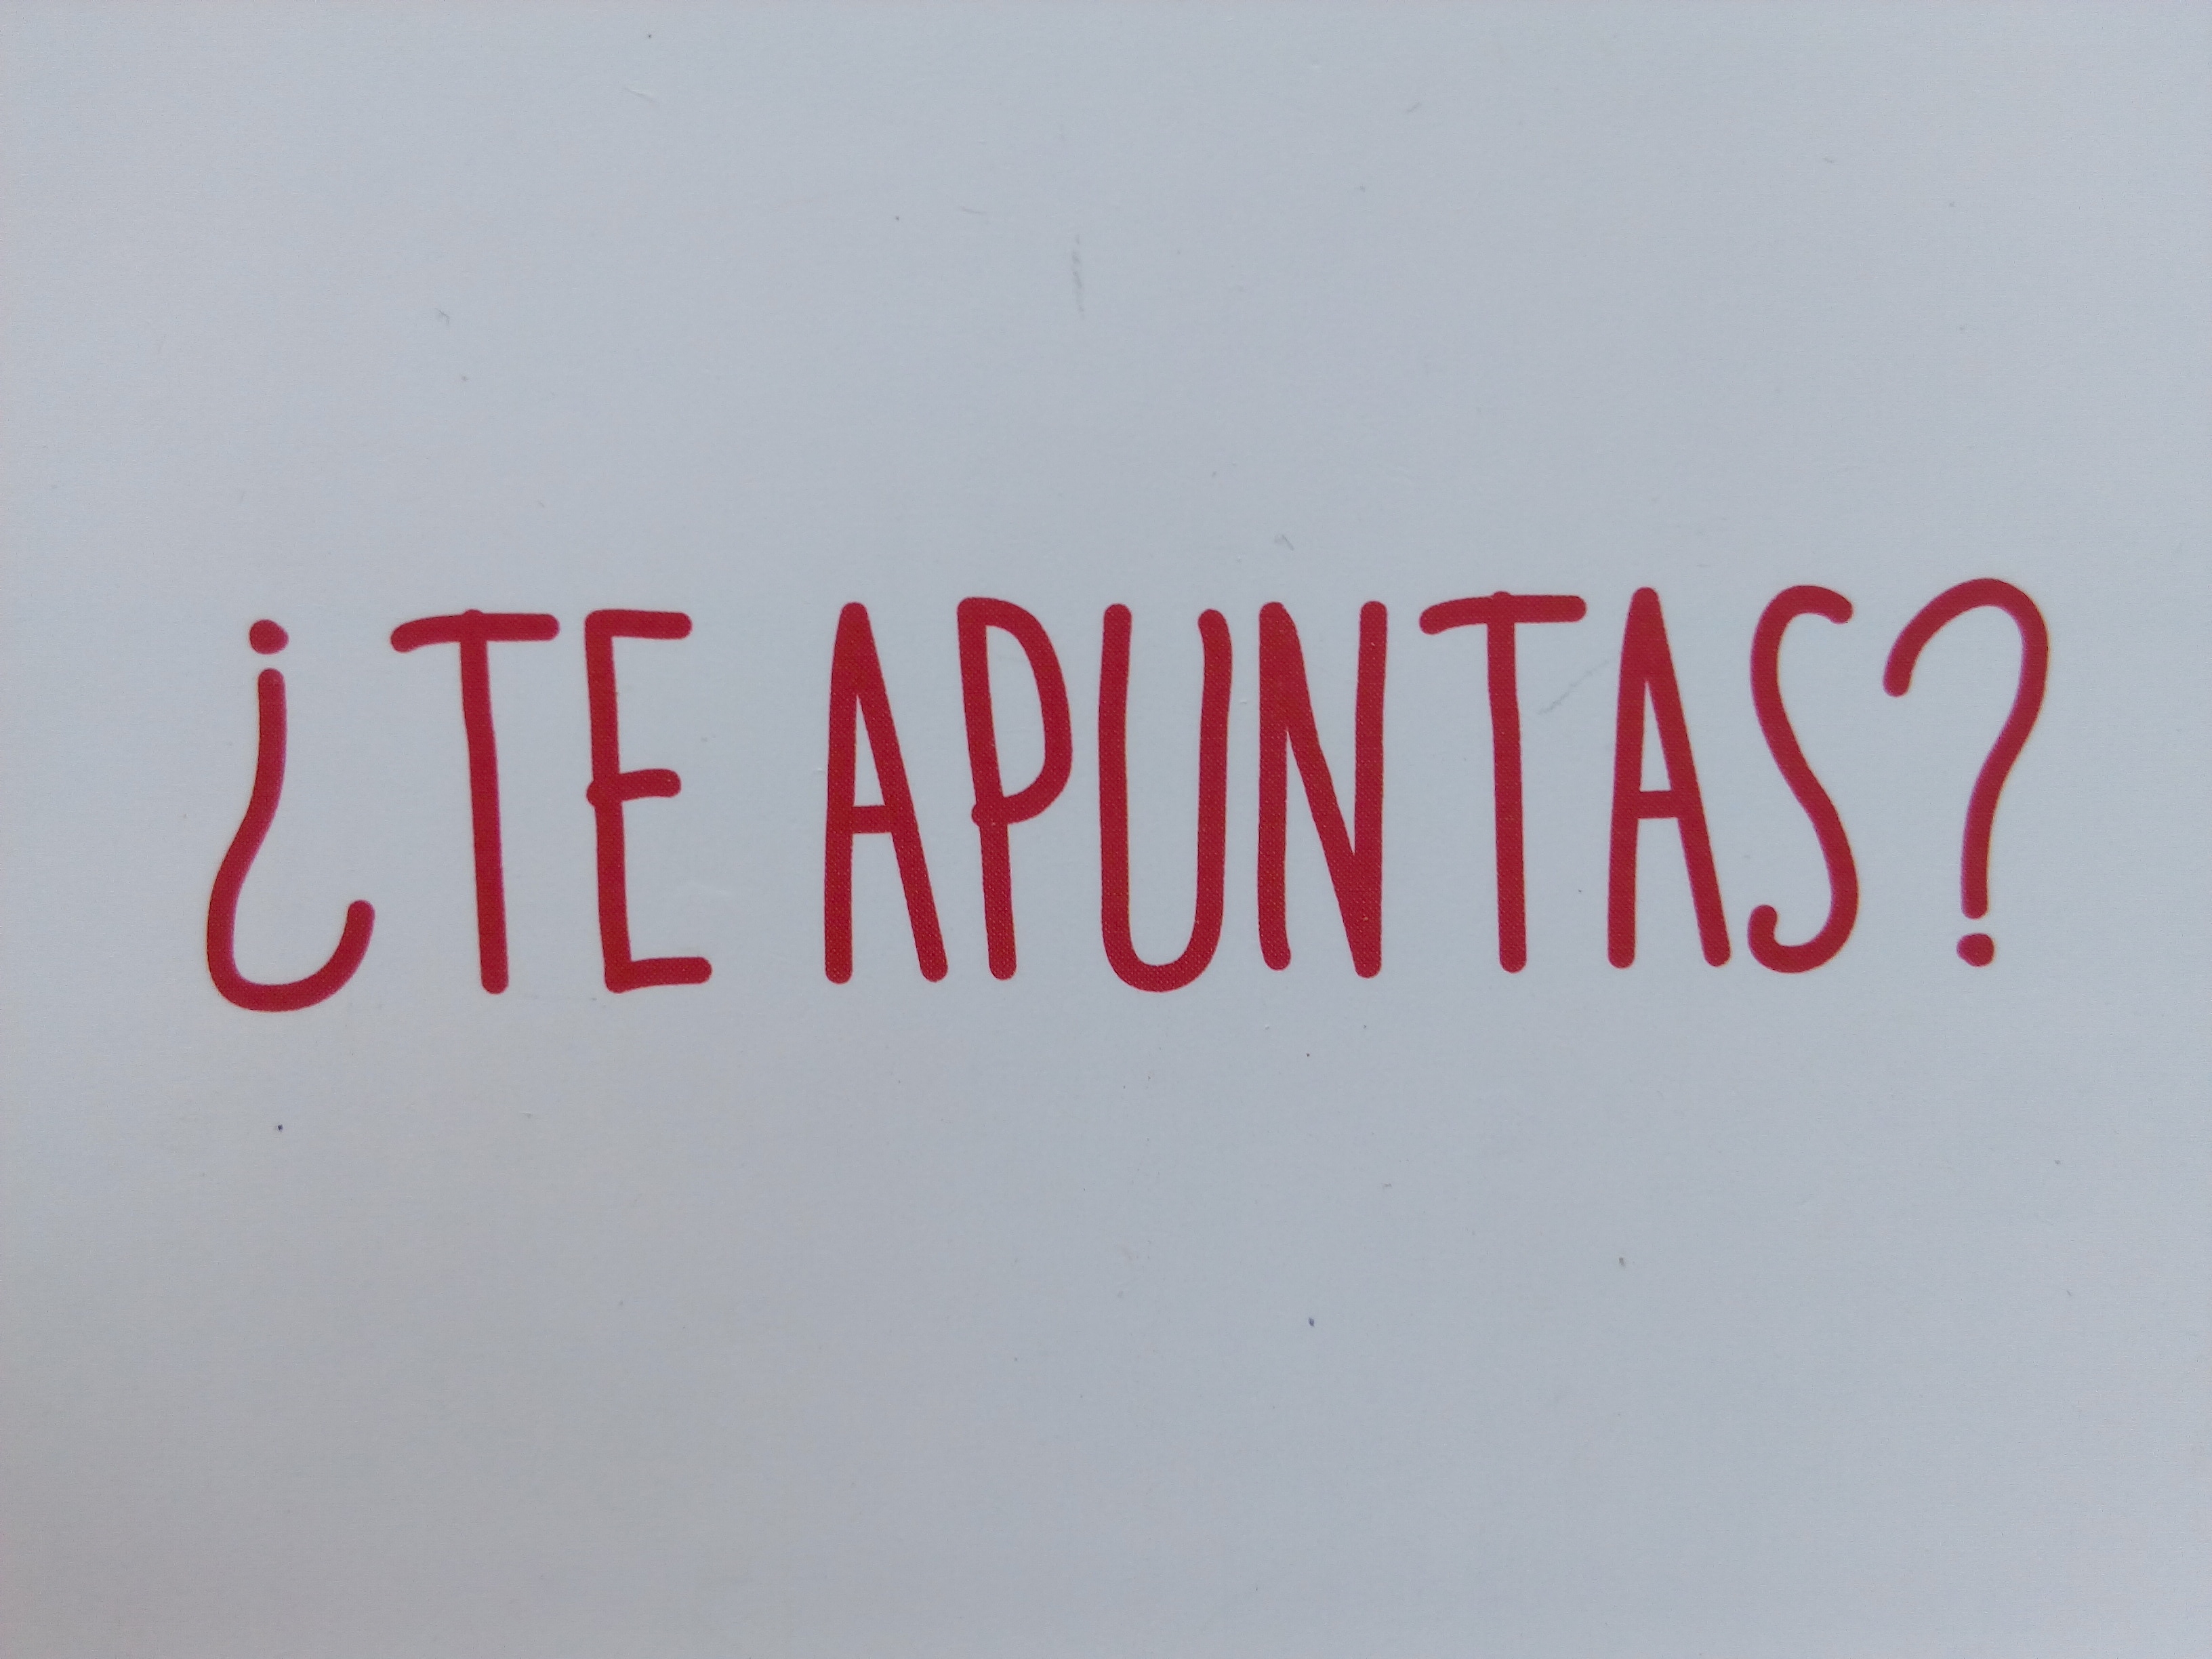 ¿TE APUNTAS?